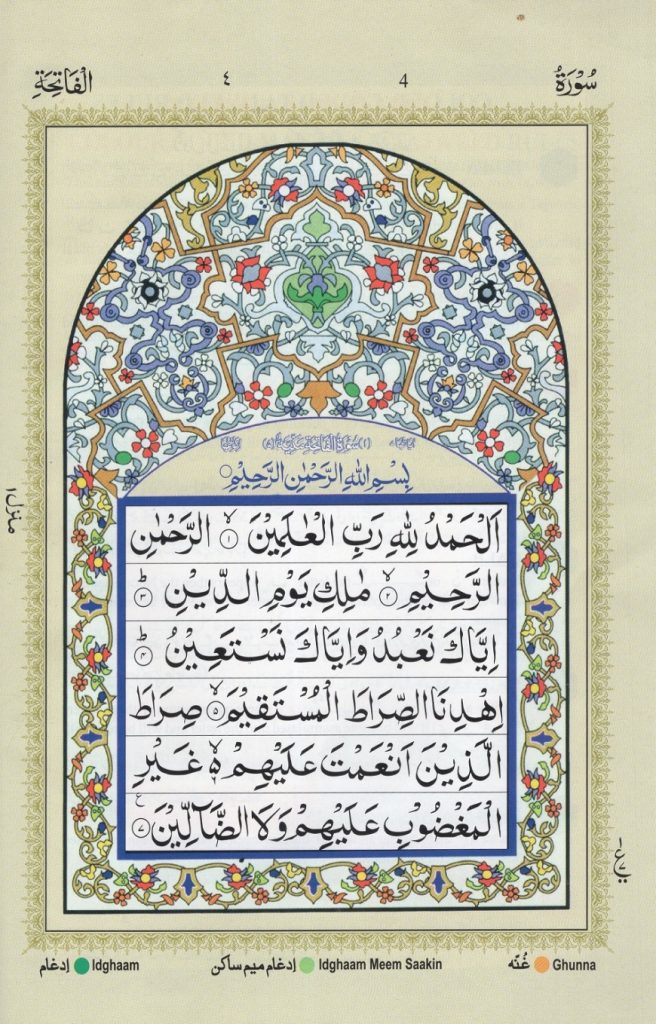 سُوْرَةُ 4 ٤ الْفَاتِحَةِ
بِسْمِ اللهِ الرَّحْمٰنِ الرَّحِيْمِ
اَلْحَمْدُ لِلّٰهِ رَبِّ الْعٰلَمِيْنَ ۙ﴿١﴾ الرَّحْمٰنِ
الرَّحِيْمِ ۙ﴿٢﴾ مٰلِكِ يَوْمِ الدِّيْنِ ؕ﴿٣﴾
اِيَّاكَ نَعْبُدُ وَاِيَّاكَ نَسْتَعِيْنُ ؕ﴿۴﴾
اِهْدِنَا الصِّرَاطَ الْمُسْتَقِيْمَ ۙ﴿۵﴾ صِرَاطَ
الَّذِيْنَ اَنْعَمْتَ عَلَيْهِمْ ۙ۬ۦ غَيْرِ
الْمَغْضُوْبِ عَلَيْهِمْ وَلَا الضَّآلِّيْنَ ﴿٧﴾
منزل ١
غُنّه Ghunna
اِدغام میم ساکن Idghaam Meem Saakin
اِدغام Idghaam